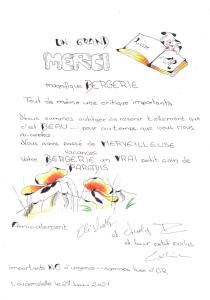 UN GRAND
MERCI
magnifique BERGERIE
Tout de même une critique importante
Nous sommes obligés de revenir tellement que
c'est BEAU ... pour autant que vous nous
Nous avons passé de MERVEILLEUSE
vacances
Votre BERGERIE un VRAI petit coin de
PARADIS
Amicalement
et Charly
et leur petit
importants NO d'urgence
le 27 2021